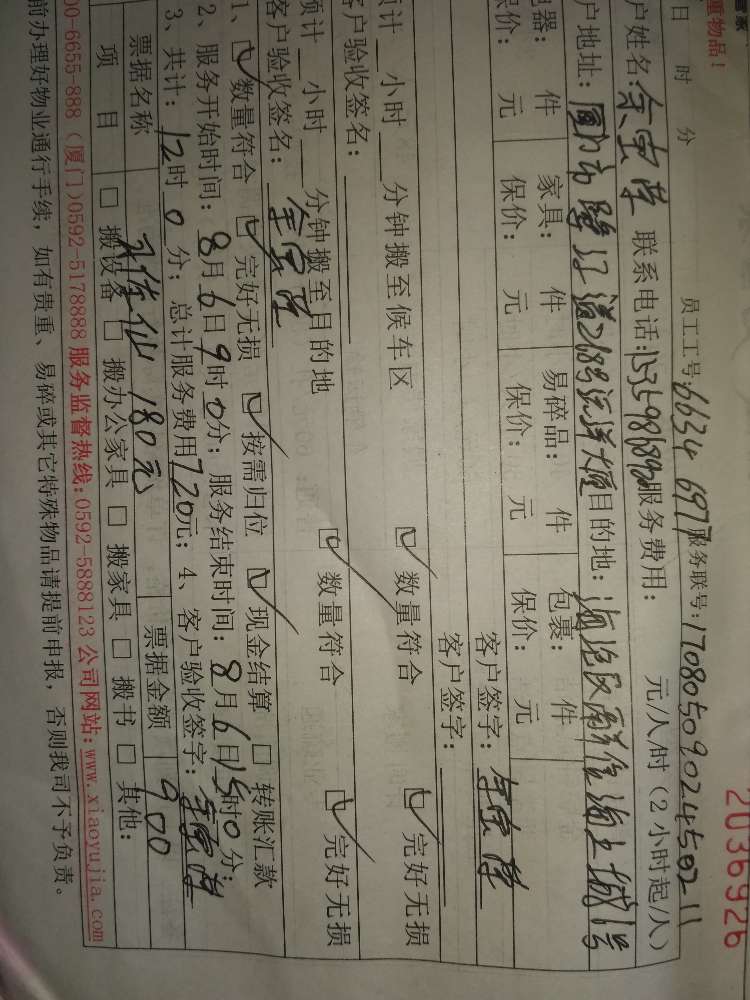 管家
重物品！
2036926
日 时 分 员工工号:6634 6977 服务联号:17080509024450211
户姓名: 联系电话: 服务费用: 元/人/时（2小时起/人）
户地址: 268号远洋大厦 目的地:
电器: 件 家具: 件 易碎品: 件 包裹: 件
保价: 元 保价: 元 保价: 元 保价: 元
客户签字:
客户签字:
预计 小时 分钟搬至候车区 数量符合 完好无损
客户验收签名:
预计 小时 分钟搬至目的地 数量符合 完好无损
客户验收签名:
1、 数量符合 完好无损 按需归位 现金结算 转账汇款
2、服务开始时间: 8月6日9时0分; 服务结束时间: 8月6日15时0分;
3、共计: 12时0分; 总计服务费用720元; 4、客户验收签字:
票据名称 180元 票据金额 900
项目 搬设备 搬办公家具 搬家具 搬书 其他:
00-6655-888（厦门）0592-5178888 服务监督热线:0592-5888123 公司网站:www.xiaoyujia.com
前办理好物业通行手续，如有贵重、易碎或其它特殊物品请提前申报，否则我司不予负责。